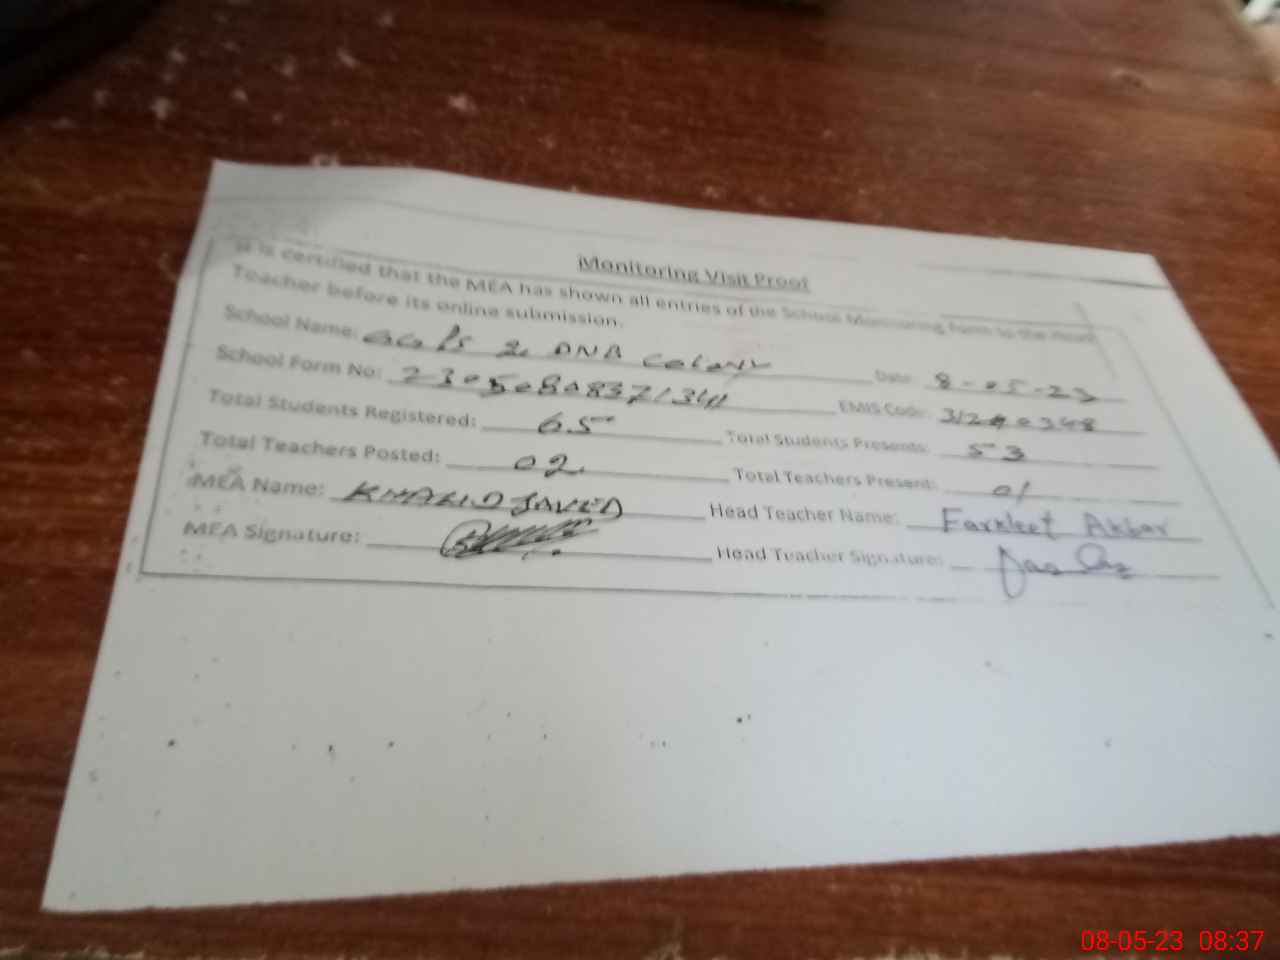 Monitoring Visit Proof
It is certified that the MEA has shown all entries of the School Monitoring Form to the Head
Teacher before its online submission.
School Name: 2 DNB Colony Date: 8-05-23
School Form No: EMIS Code:
Total Students Registered: 65 Total Students Presents: 53
Total Teachers Posted: 02 Total Teachers Present: 01
MEA Name: KHALID JAVED Head Teacher Name: Farkleet Akbar
MEA Signature: Head Teacher Signature:
08-05-23 08:37